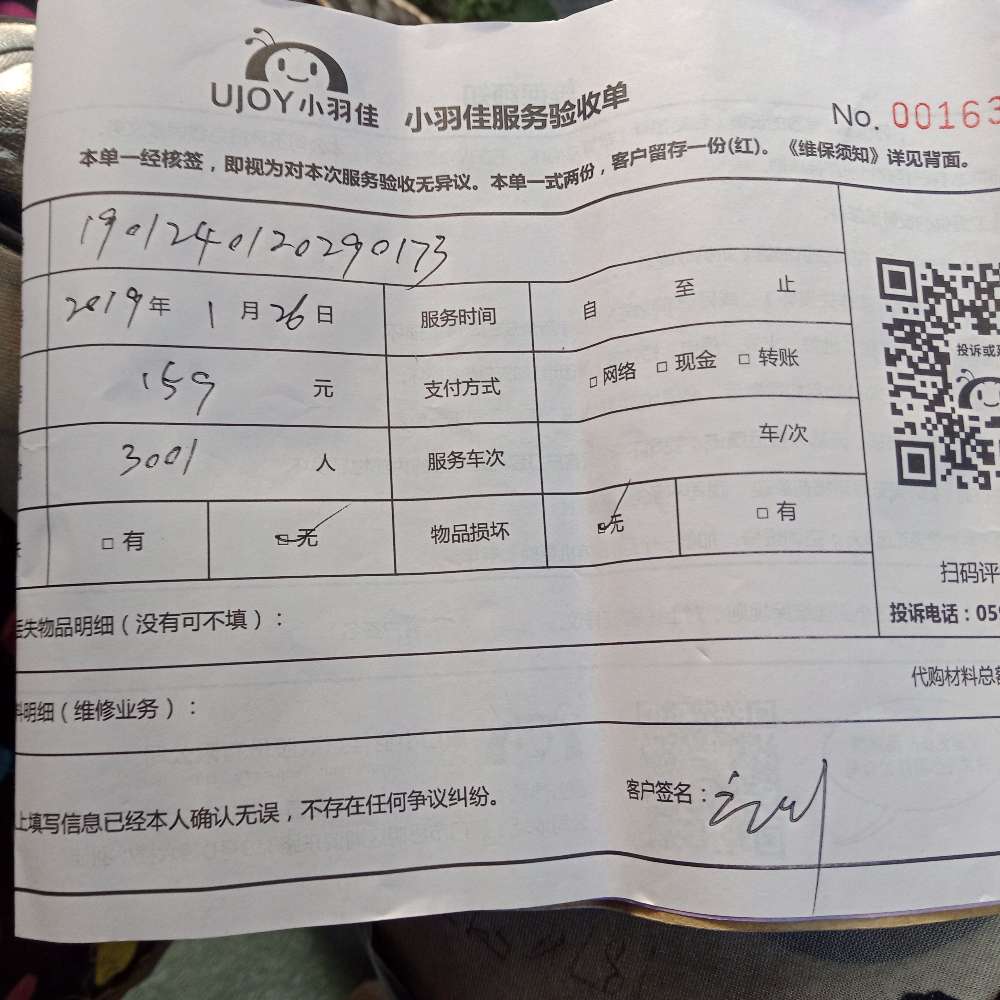 UJOY小羽佳 小羽佳服务验收单 No. 00163
本单一经核签，即视为对本次服务验收无异议。本单一式两份，客户留存一份(红)。《维保须知》详见背面。
1901240120290173
2019年 1月26日 服务时间 自 至 止
159 元 支付方式 □网络 □现金 □转账
投诉或
3001 人 服务车次 车/次
□有 □无 物品损坏 □无 □有
扫码评
投诉电话：059
失物品明细（没有可不填）：
代购材料总
明细（维修业务）：
上填写信息已经本人确认无误，不存在任何争议纠纷。 客户签名：